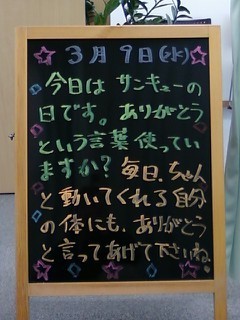 3月9日(水)
今日は サンキューの
日です。ありがとう
という言葉使ってい
ますか?毎日、ちゃん
と動いてくれる自分
の体にも、ありがとう
と言ってあげて下さいね。